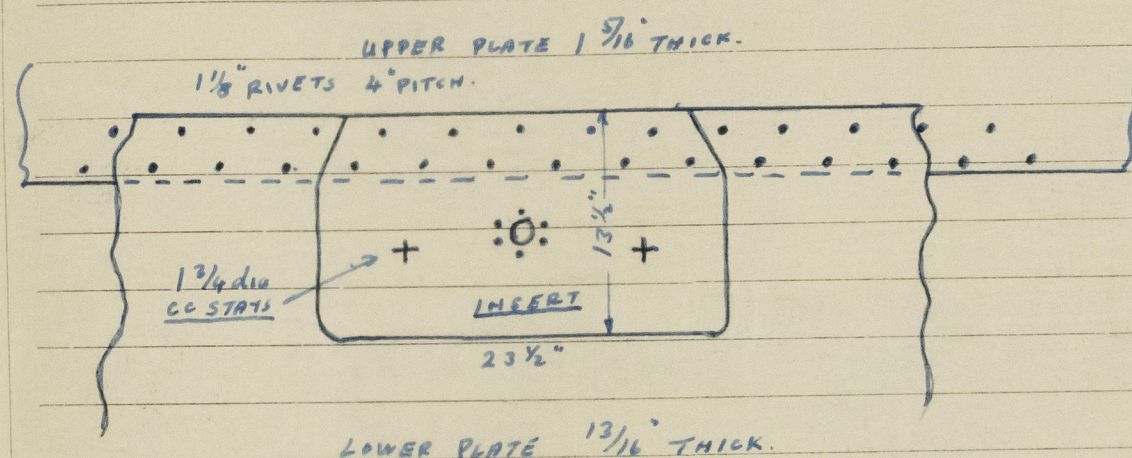 UPPER PLATE 1 5/16" THICK.
1 1/8" RIVETS 4" PITCH.
13 1/2"
1 3/4 dia
CC STAYS
INSERT
23 1/2"
LOWER PLATE 13/16" THICK.